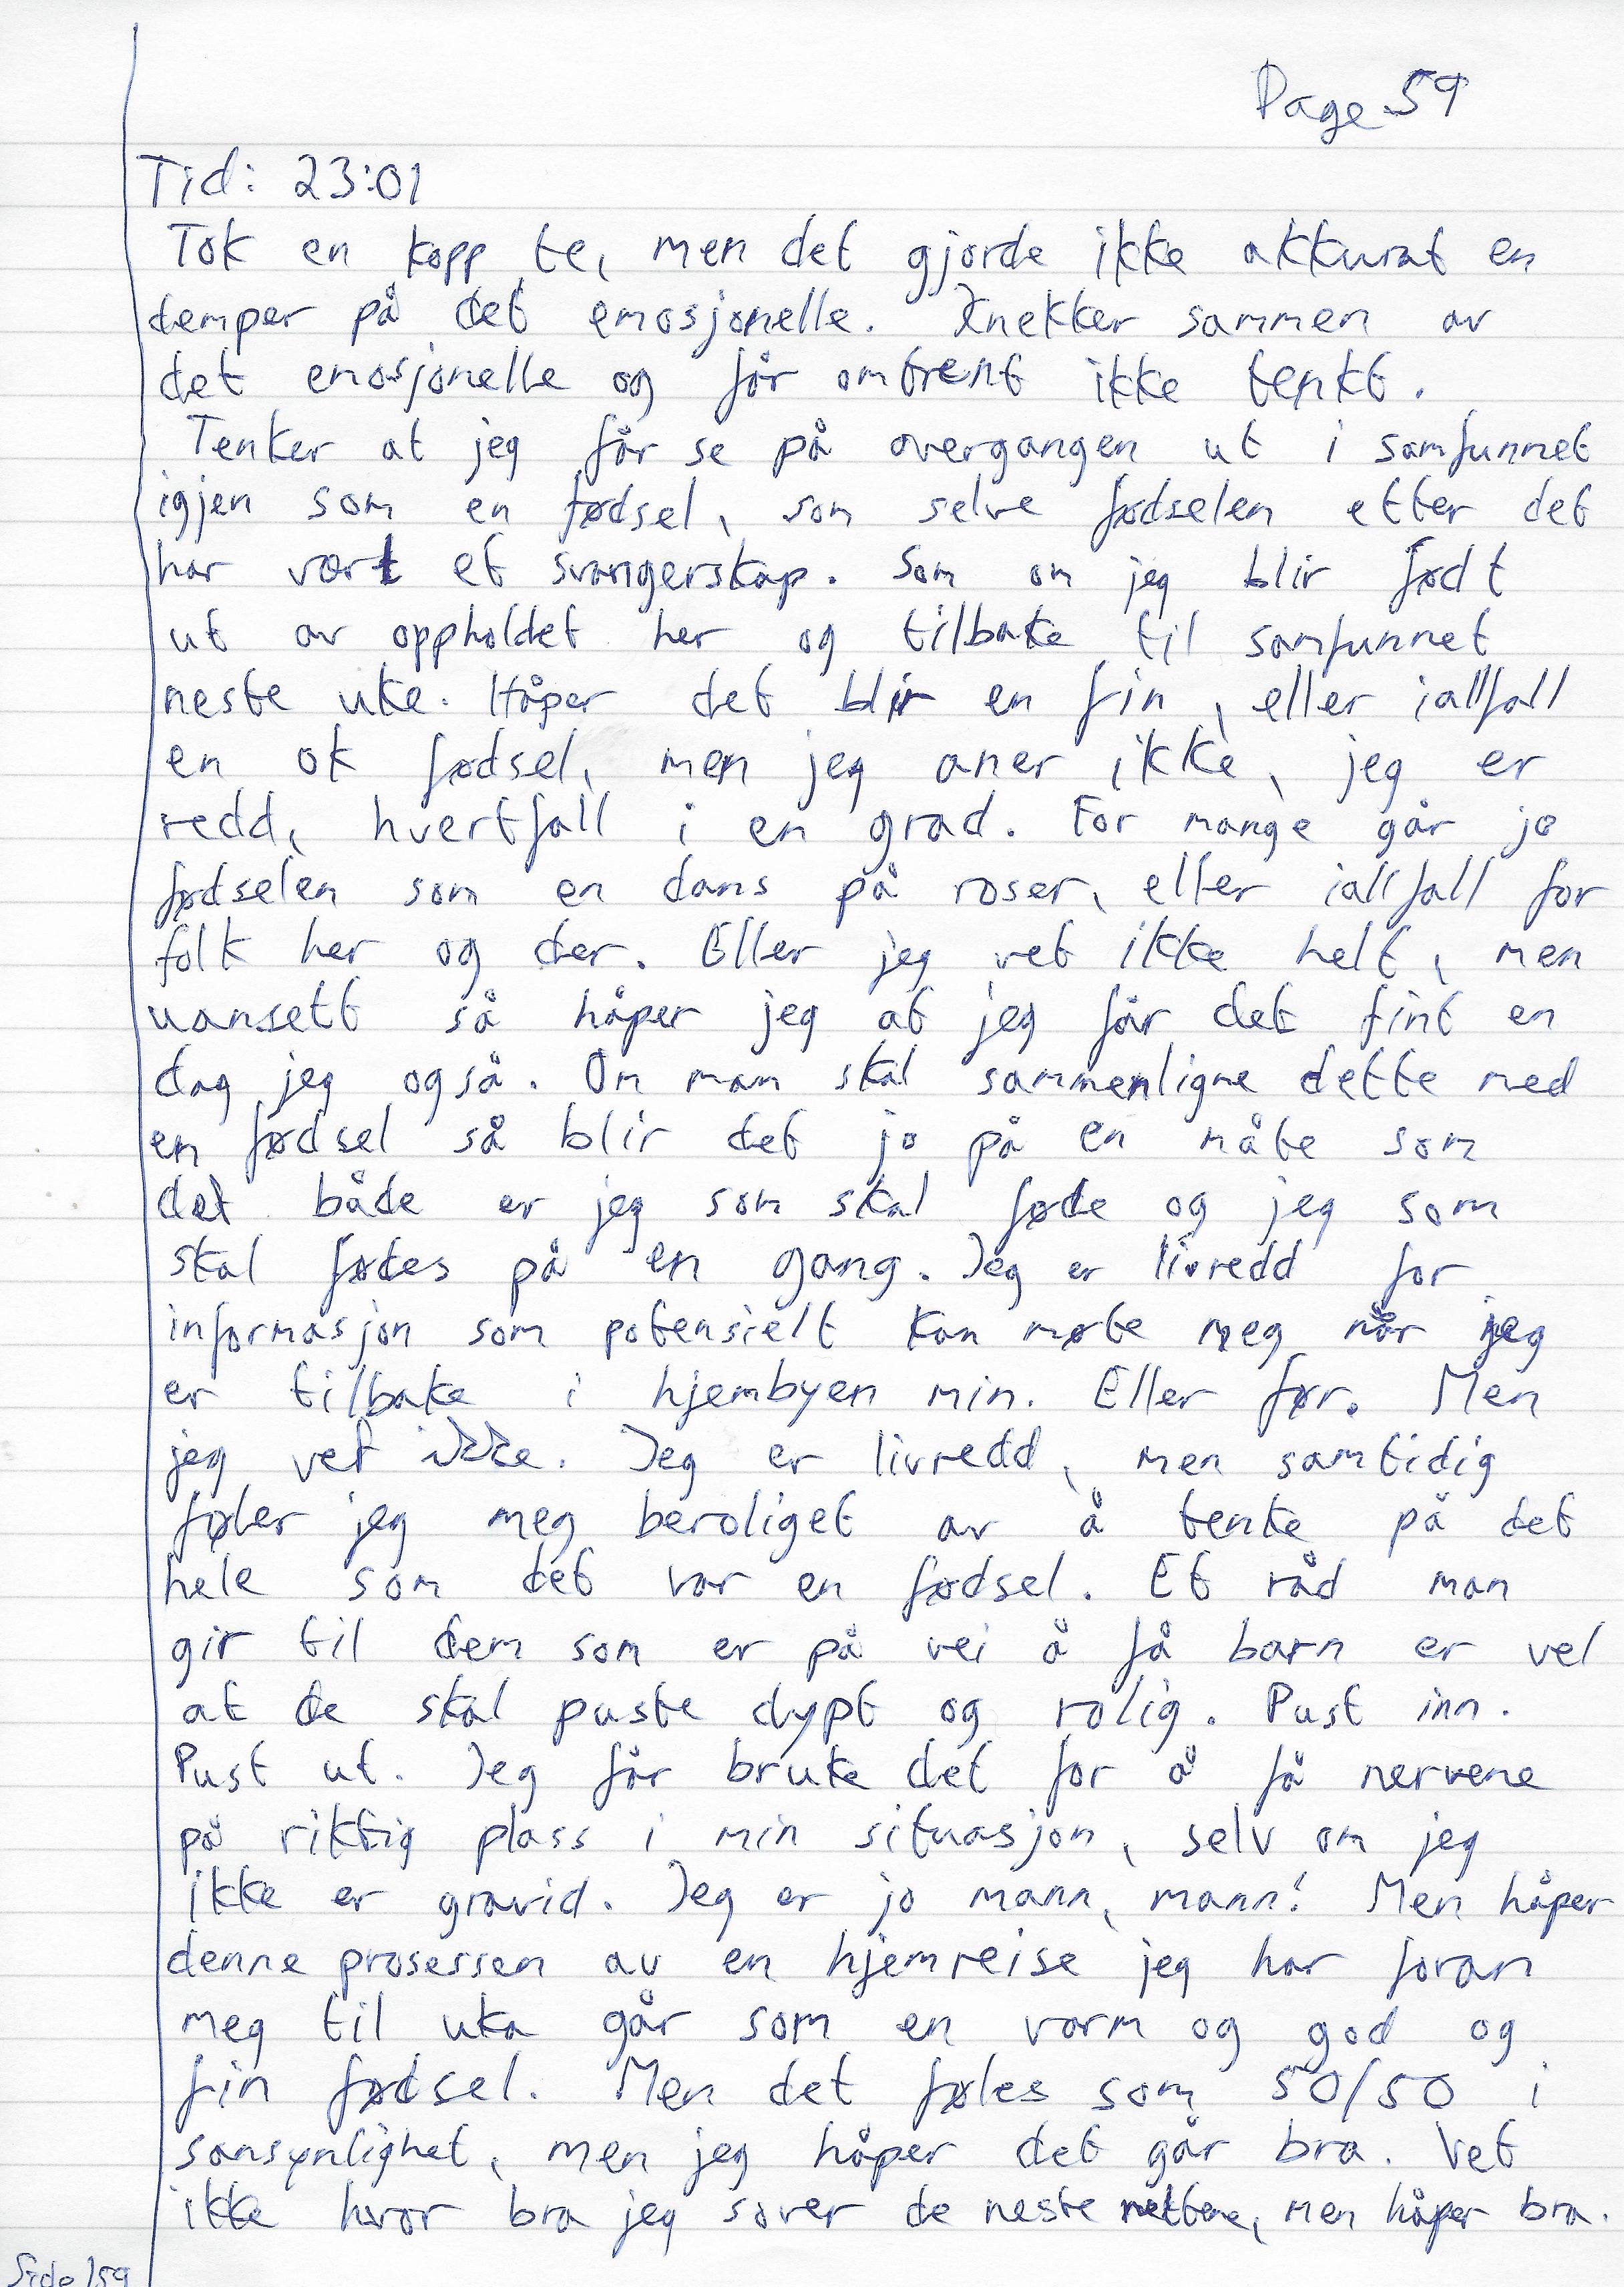 Page 59
Tid: 23:01
Tok en kopp te, men det gjorde ikke akkurat en
demper på det emosjonelle. Knekker sammen av
det emosjonelle og får omtrent ikke tenkt.
Tenker at jeg får se på overgangen ut i samfunnet
igjen som en fødsel, som selve fødselen etter det
har vært et svangerskap. Som om jeg blir født
ut av oppholdet her og tilbake til samfunnet
neste uke. Håper det blir en fin, eller iallfall
en ok fødsel, men jeg aner ikke, jeg er
redd, hvertfall i en grad. For mange går jo
fødselen som en dans på roser, eller iallfall for
folk her og der. Eller jeg vet ikke helt, men
uansett så håper jeg at jeg får det fint en
dag jeg også. Om man skal sammenligne dette med
en fødsel så blir det jo på en måte som
det både er jeg som skal føde og jeg som
skal fødes på en gang. Jeg er livredd for
informasjon som potensielt kan møte meg når jeg
er tilbake i hjembyen min. Eller før. Men
jeg vet ikke. Jeg er livredd, men samtidig
føler jeg meg beroliget av å tenke på det
hele som det var en fødsel. Et råd man
gir til dem som er på vei å få barn er vel
at de skal puste dypt og rolig. Pust inn.
Pust ut. Jeg får bruke det for å få nervene
på riktig plass i min situasjon, selv om jeg
ikke er gravid. Jeg er jo mann, mann! Men håper
denne prosessen av en hjemreise jeg har foran
meg til uka går som en varm og god og
fin fødsel. Men det føles som 50/50 i
sansynlighet, men jeg håper det går bra. Vet
ikke hvor bra jeg sover de neste nettene, men håper bra.
Side 159